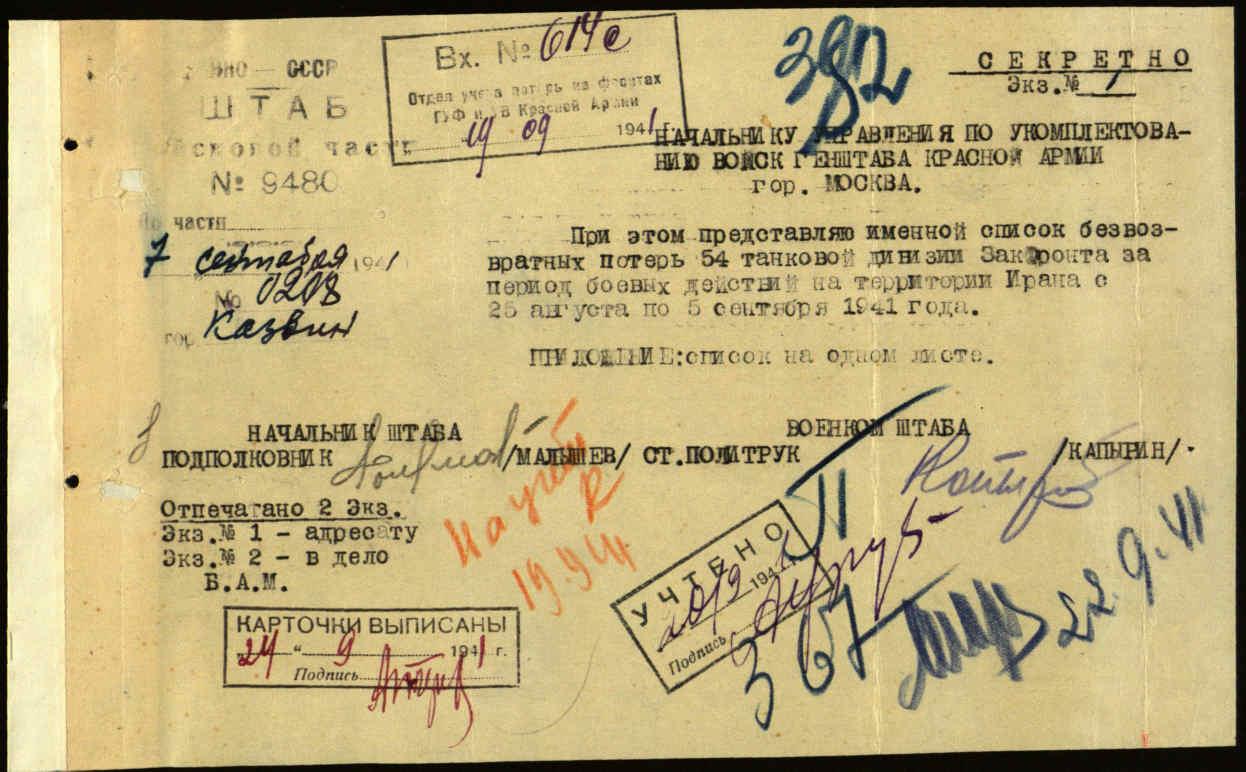 НКО — СССР
ШТАБ
войсковой части
№ 9480
По части
7 сентября 1941
№ 0208
гор. Казвин
Вх. № 614с
Отдел учета потерь на фронтах
ГУФ и УВ Красной Армии
19 09 1941
382
СЕКРЕТНО
Экз.№ 1
НАЧАЛЬНИКУ УПРАВЛЕНИЯ ПО УКОМПЛЕКТОВА-
НИЮ ВОЙСК ГЕНШТАБА КРАСНОЙ АРМИИ
гор. МОСКВА.
При этом представляю именной список безвоз-
вратных потерь 54 танковой дивизии Закфронта за
период боевых действий на территории Ирана с
25 августа по 5 сентября 1941 года.
ПРИЛОЖЕНИЕ:список на одном листе.
НАЧАЛЬНИК ШТАБА
ПОДПОЛКОВНИК /МАЛЫШЕВ/
ВОЕНКОМ ШТАБА
СТ.ПОЛИТРУК /КАПЫРИН/.
Отпечатано 2 Экз.
Экз.№ 1 - адресату
Экз.№ 2 - в дело
Б.А.М.
На учет
19.9.41
КАРТОЧКИ ВЫПИСАНЫ
„24“ 9 1941 г.
Подпись
УЧТЕНО
20/9 1941
Подпись
367
22.9.41